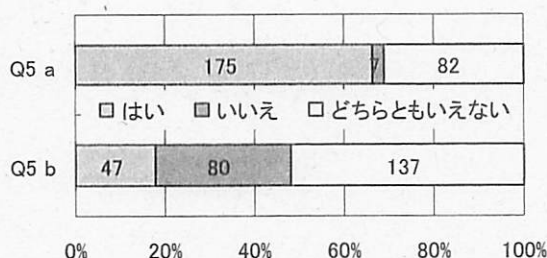 Q5 a 175 7 82
はい いいえ どちらともいえない
Q5 b 47 80 137
0% 20% 40% 60% 80% 100%